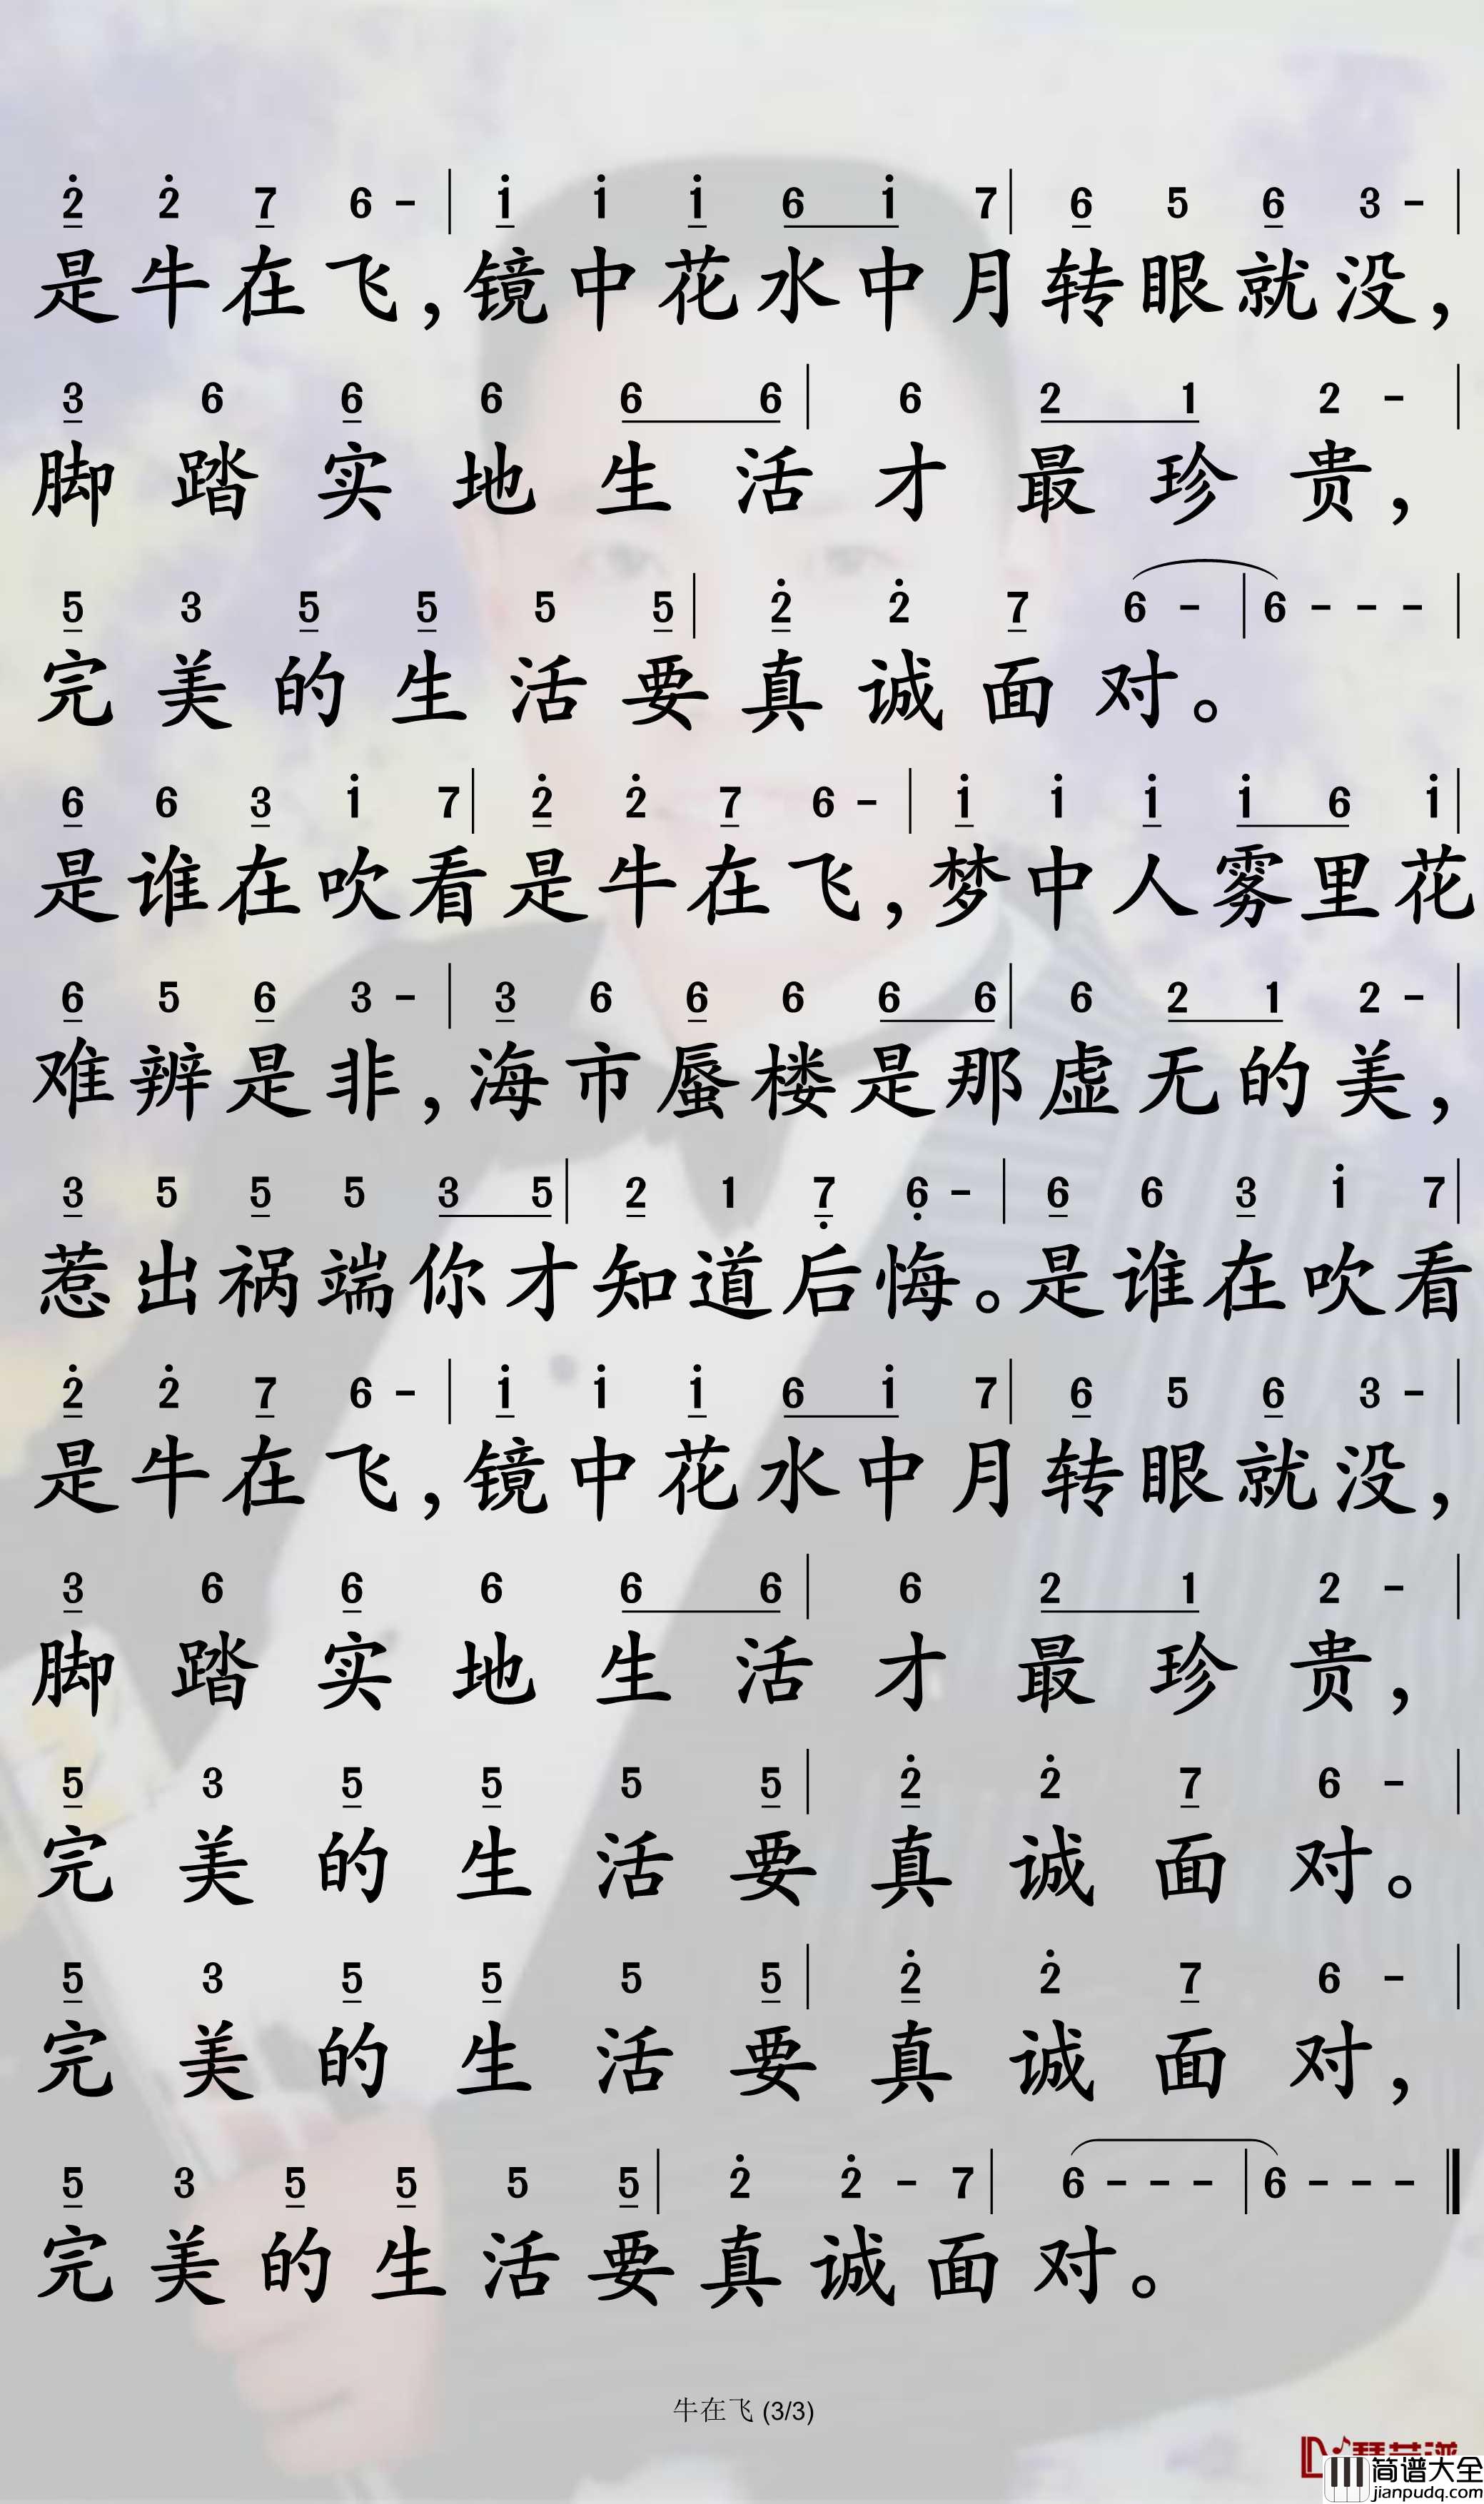 2 2 7 6 - | 1 1 1 6 1 7 | 6 5 6 3 - |
是牛在飞，镜中花水中月转眼就没，
3 6 6 6 6 6 | 6 2 1 2 - |
脚踏实地生活才最珍贵，
5 3 5 5 5 5 | 2 2 7 6 - | 6 - - - |
完美的生活要真诚面对。
6 6 3 1 7 | 2 2 7 6 - | 1 1 1 1 6 1 |
是谁在吹看是牛在飞，梦中人雾里花
6 5 6 3 - | 3 6 6 6 6 6 | 6 2 1 2 - |
难辨是非，海市蜃楼是那虚无的美，
3 5 5 5 3 5 | 2 1 7 6 - | 6 6 3 1 7 |
惹出祸端你才知道后悔。是谁在吹看
2 2 7 6 - | 1 1 1 6 1 7 | 6 5 6 3 - |
是牛在飞，镜中花水中月转眼就没，
3 6 6 6 6 6 | 6 2 1 2 - |
脚踏实地生活才最珍贵，
5 3 5 5 5 5 | 2 2 7 6 - |
完美的生活要真诚面对。
5 3 5 5 5 5 | 2 2 7 6 - |
完美的生活要真诚面对，
5 3 5 5 5 5 | 2 2 - 7 | 6 - - - | 6 - - - ‖
完美的生活要真诚面对。
牛在飞 (3/3)
简谱大全
jianpudq.com